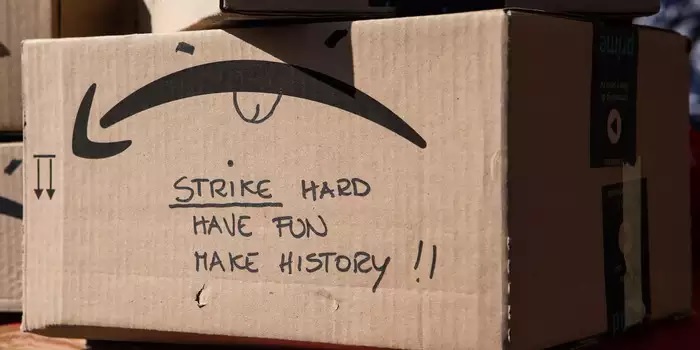 STRIKE HARD
HAVE FUN
MAKE HISTORY !!
prime